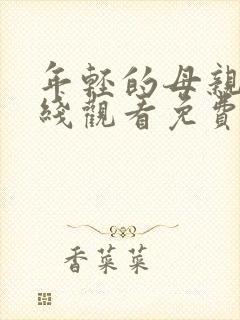 年轻的母親
綫觀看免費
香菜菜